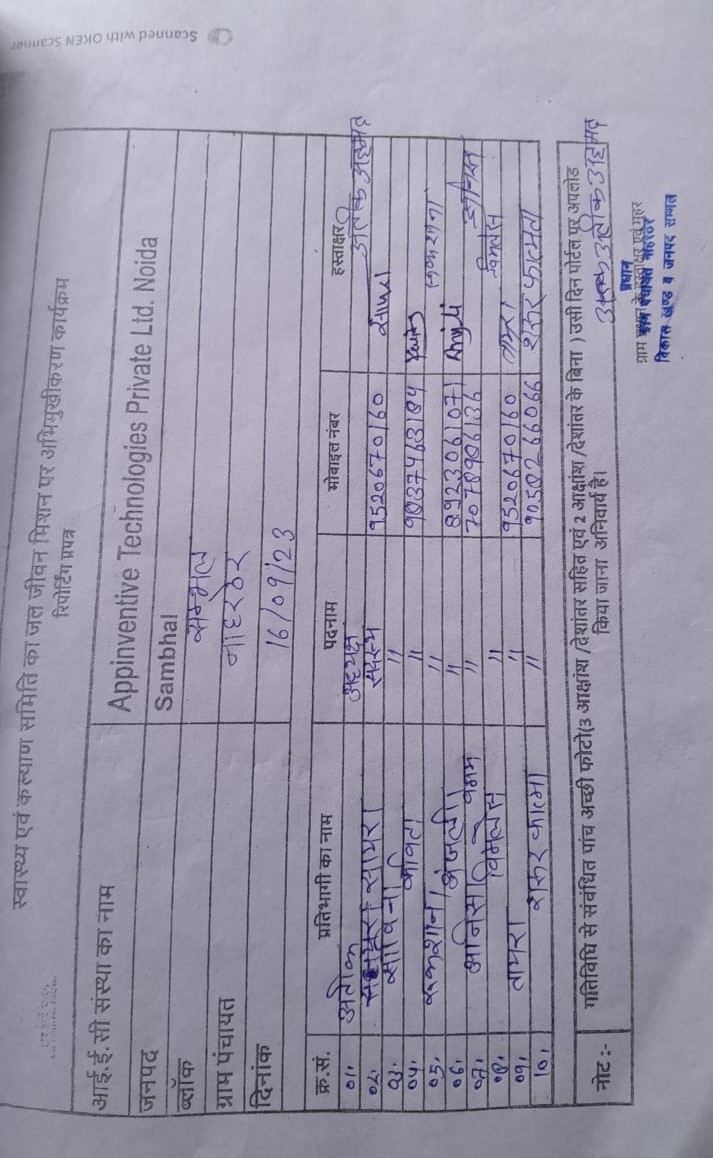 स्वास्थ्य एवं कल्याण समिति का जल जीवन मिशन पर अभिमुखीकरण कार्यक्रम
रिपोर्टिंग प्रपत्र
आई.ई.सी संस्था का नाम Appinventive Technologies Private Ltd. Noida
जनपद Sambhal
ब्लॉक सम्भल
ग्राम पंचायत नाहरठेर
दिनांक 16/09/23
क्र.सं. प्रतिभागी का नाम पदनाम मोबाइल नंबर हस्ताक्षर
01. अतीक अध्यक्ष अतीक अहमद
02. सायरा सदस्य 9520670160
03. सावित्री "
04. कविता " 9837463184
05. रूकशाना " रूकशाना
06. अंजली " 8923061071 Anjali
07. अनिसा बेगम " 7078906136
08. विमलेश " विमलेश
09. तामरा " 9520670160
10. शरूर फात्मा " 9050266066 शरूर फात्मा
नोट :- गतिविधि से संबंधित पांच अच्छी फोटो(3 आक्षांश /देशांतर सहित एवं 2 आक्षांश /देशांतर के बिना ) उसी दिन पोर्टल पर अपलोड
किया जाना अनिवार्य है।
अतीक अहमद
प्रधान
ग्राम पंचायत नाहरठेर
विकास खण्ड व जनपद सम्भल
Scanned with OKEN Scanner